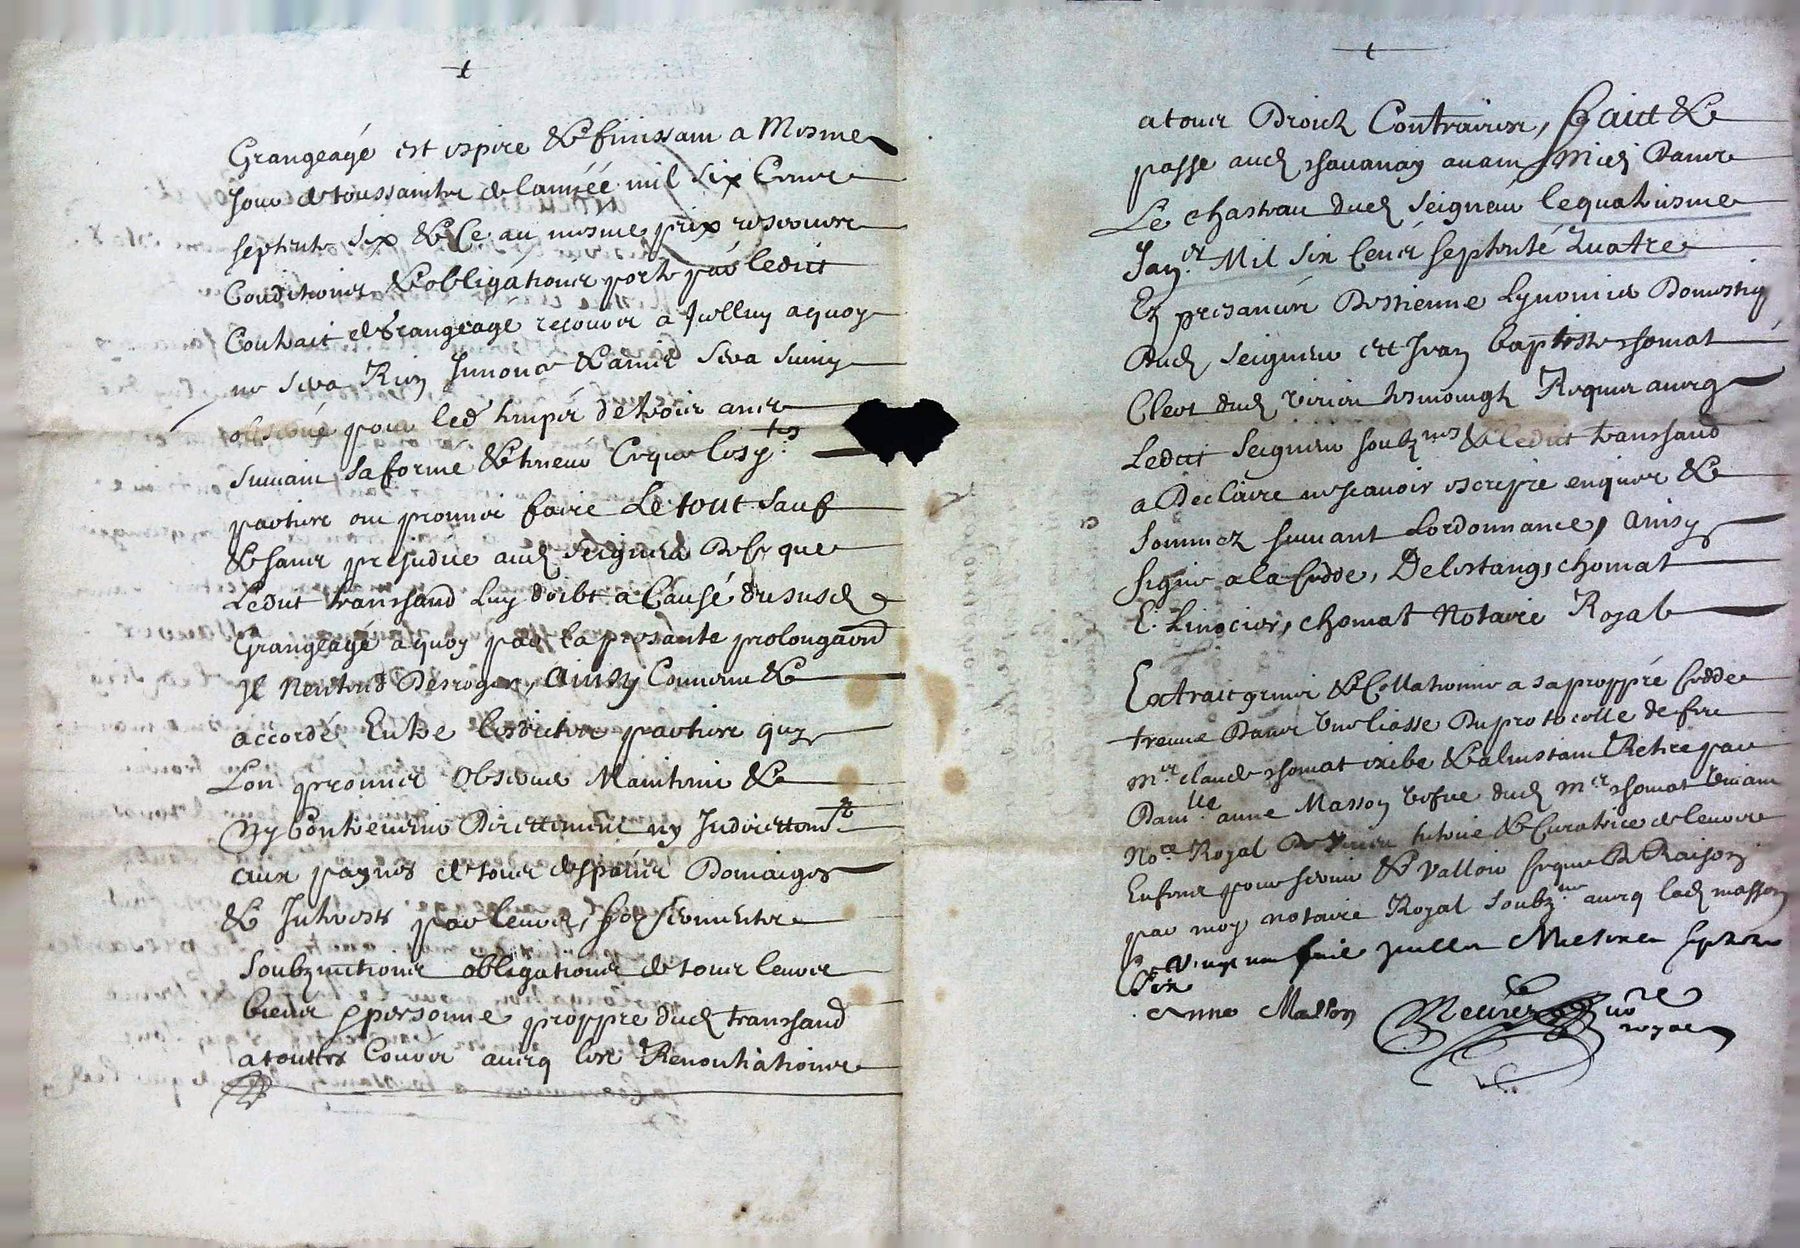 Grangeagé est expire & finissam a Mesme
Jour de toussaintz de lannéé mil six Cent
septente six & Ce au mesme prix reserver
Conditions & obligations porte par ledict
Contrait de Grangeage
ne sera Rien Innoue & ains sera suivy
obserué pour led temps de trois ans
suivant sa forme & teneur Ceque les p.tes
parties ont promis faire Le tout Sauf
& sans prejudice aud Seigneur De ce que
Ledict transsand Luy doibt a Causé du susd
Grangeagé aquoy par la presante prolongaon
Il Nentend Desroger, Ainsy Conuenu &
accordé Entre lesdictes parties quy
Lon promis Obserue Maintenir &
Ny Contreuenir Directement ny Indirettem.t
aux paynes de tous despans Domaiges
& Interests par leurs, foy serment
Soubzmissions obligations de tous leurs
biens personne proppre dud transsand
a touttes Cours aueq les Renontiations
a tous Droictz Contraires, faict &
passe aud chauanay auant Midy Dans
Le chasteau dud Seigneur le quatriesme
Jan.er Mil Six Cens Septente Quatre
En presances Destienne Lynossier Domestiq
dud Seigneur ett Jean baptiste chomat
Clerc dud virieu tesmoingtz Requis aueq
Ledict Seigneur soubz.nes & ledict transsand
a Declaire ne scauoir escripre enquis &
Sommez suiuant Lordonnance, Ainsy
signe a la cedde, Delestang, chomat
E. Linocier, chomat Notaire Royal
Extrait prins & Collationne a sa proppre cedde
treuue Dans Une liasse Du protocolle de feu
M.re claude chomat exibe & alinstant Retire par
Dam.lle anne Masson vefue dud M.re chomat viuant
No.re Royal De Virieu tutrice & Curatrice de leurs
Enfans pour seruir & Valloir ceque De Raison
par moy notaire Royal Soubz.ne aueq lad masson
Ce Vingt un
Six
Anne Masson
no.re
royal